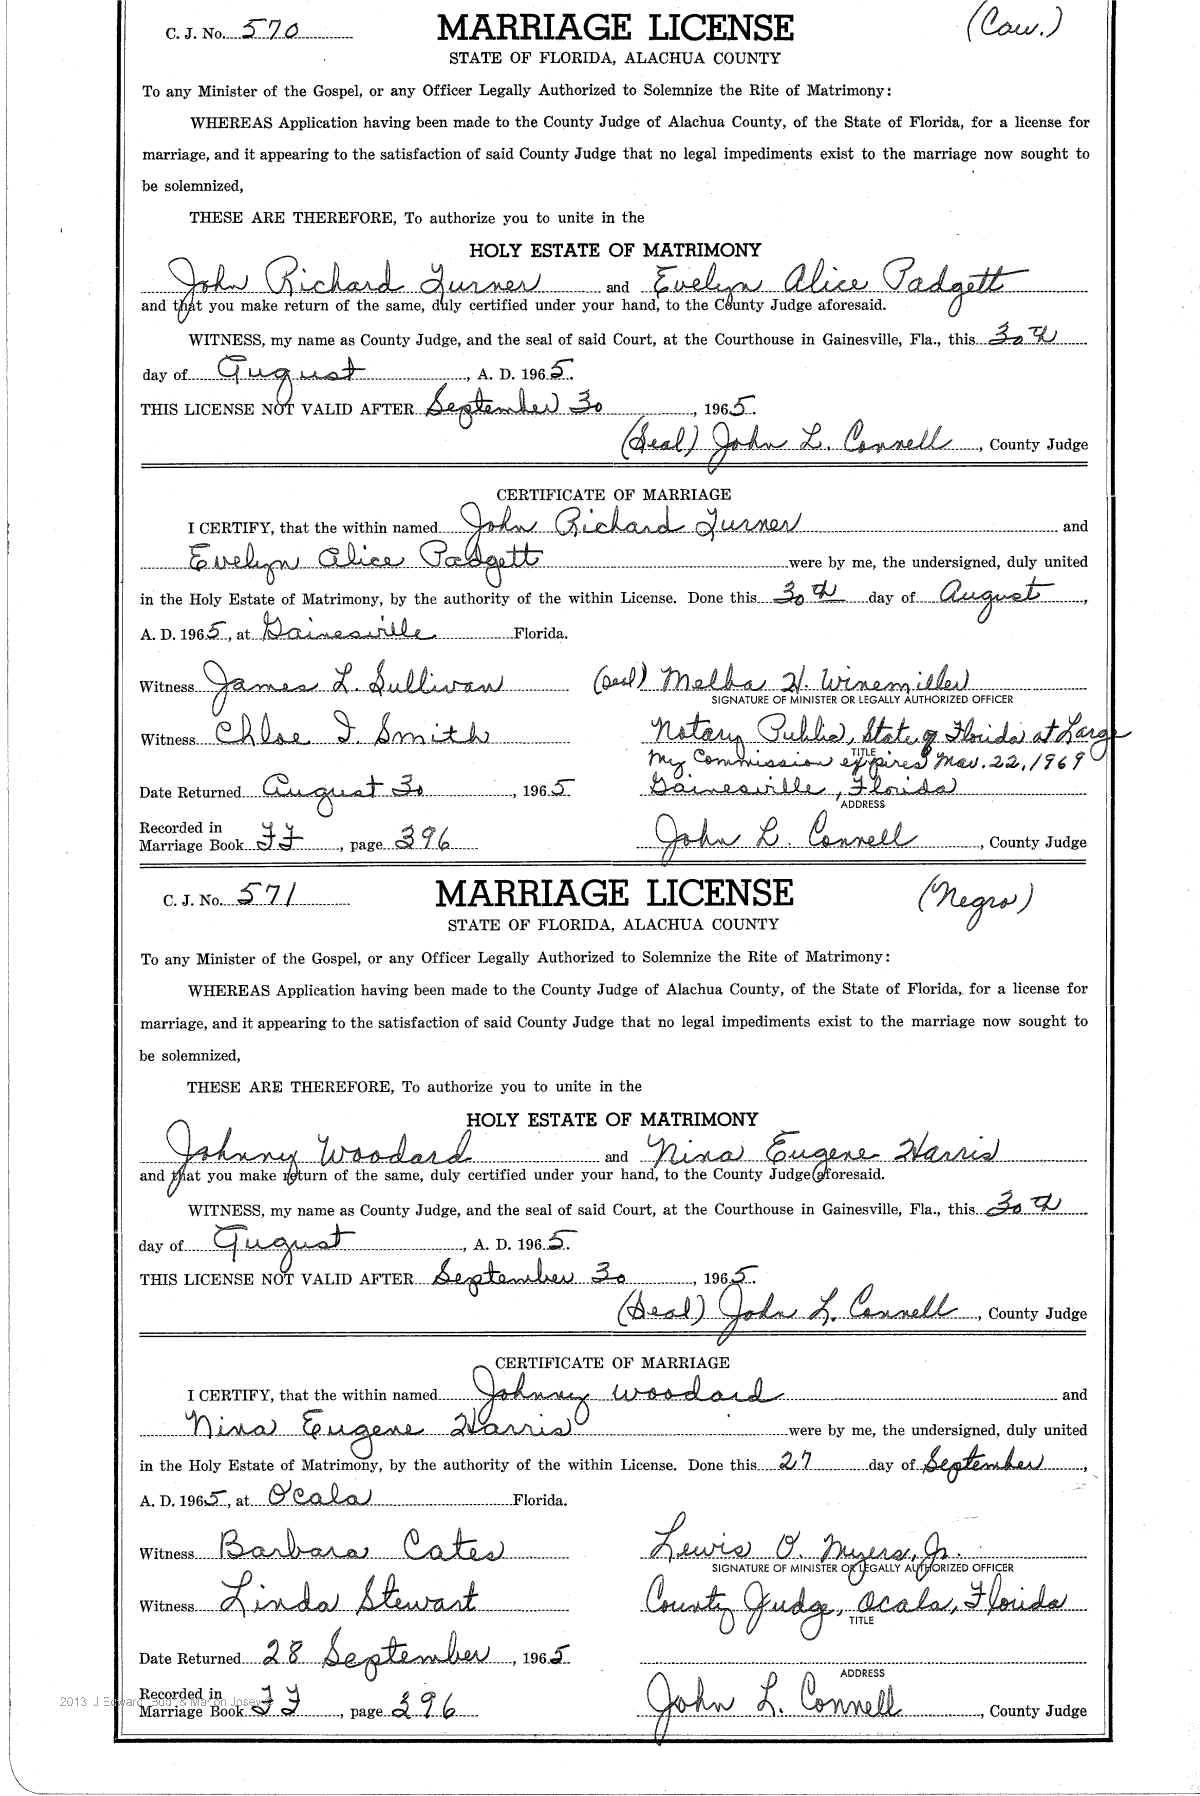 C. J. No. 570 MARRIAGE LICENSE (Cau.)
STATE OF FLORIDA, ALACHUA COUNTY
To any Minister of the Gospel, or any Officer Legally Authorized to Solemnize the Rite of Matrimony:
WHEREAS Application having been made to the County Judge of Alachua County, of the State of Florida, for a license for
marriage, and it appearing to the satisfaction of said County Judge that no legal impediments exist to the marriage now sought to
be solemnized,
THESE ARE THEREFORE, To authorize you to unite in the
HOLY ESTATE OF MATRIMONY
John Richard Turner and Evelyn Alice Padgett
and that you make return of the same, duly certified under your hand, to the County Judge aforesaid.
WITNESS, my name as County Judge, and the seal of said Court, at the Courthouse in Gainesville, Fla., this 30th
day of August, A. D. 1965.
THIS LICENSE NOT VALID AFTER September 30, 1965.
(Seal) John L. Connell, County Judge
CERTIFICATE OF MARRIAGE
I CERTIFY, that the within named John Richard Turner and
Evelyn Alice Padgett were by me, the undersigned, duly united
in the Holy Estate of Matrimony, by the authority of the within License. Done this 30th day of August,
A. D. 1965, at Gainesville Florida.
Witness James L. Sullivan (Seal) Melba H. Winemiller
SIGNATURE OF MINISTER OR LEGALLY AUTHORIZED OFFICER
Witness Chloe I. Smith Notary Public, State of Florida at Large
TITLE
My Commission expires Mar. 22, 1969
Date Returned August 30, 1965 Gainesville, Florida
ADDRESS
Recorded in
Marriage Book FF, page 396 John L. Connell, County Judge
C. J. No. 571 MARRIAGE LICENSE (Negro)
STATE OF FLORIDA, ALACHUA COUNTY
To any Minister of the Gospel, or any Officer Legally Authorized to Solemnize the Rite of Matrimony:
WHEREAS Application having been made to the County Judge of Alachua County, of the State of Florida, for a license for
marriage, and it appearing to the satisfaction of said County Judge that no legal impediments exist to the marriage now sought to
be solemnized,
THESE ARE THEREFORE, To authorize you to unite in the
HOLY ESTATE OF MATRIMONY
Johnny Woodard and Nina Eugene Harris
and that you make return of the same, duly certified under your hand, to the County Judge aforesaid.
WITNESS, my name as County Judge, and the seal of said Court, at the Courthouse in Gainesville, Fla., this 30th
day of August, A. D. 1965.
THIS LICENSE NOT VALID AFTER September 30, 1965.
(Seal) John L. Connell, County Judge
CERTIFICATE OF MARRIAGE
I CERTIFY, that the within named Johnny Woodard and
Nina Eugene Harris were by me, the undersigned, duly united
in the Holy Estate of Matrimony, by the authority of the within License. Done this 27 day of September,
A. D. 1965, at Ocala Florida.
Witness Barbara Cates Lewis O. Myers, Jr.
SIGNATURE OF MINISTER OR LEGALLY AUTHORIZED OFFICER
Witness Linda Stewart County Judge, Ocala, Florida
TITLE
Date Returned 28 September, 1965
ADDRESS
Recorded in
Marriage Book FF, page 396 John L. Connell, County Judge
2013 J Edward